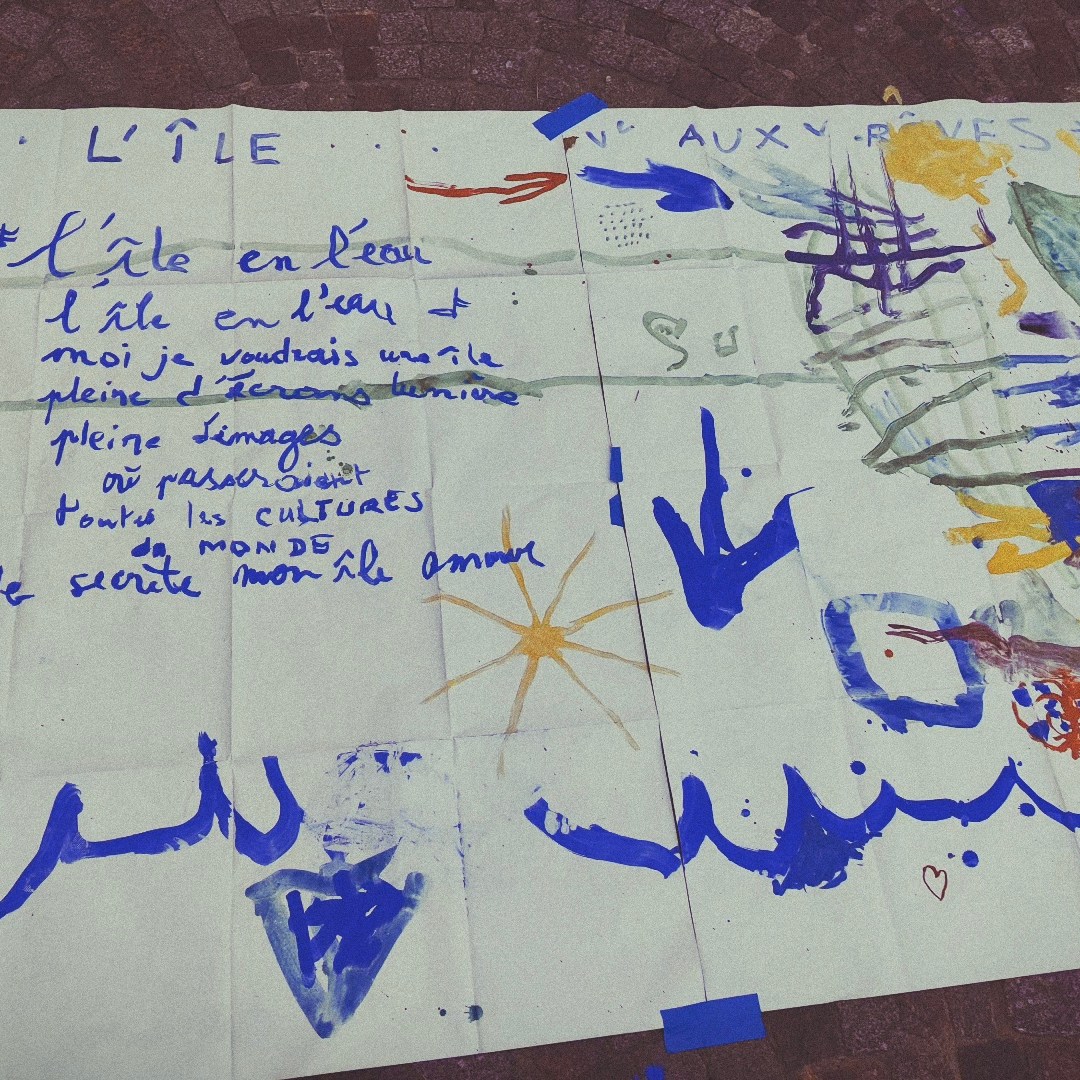 L'ÎLE AUX RÊVES
l'île en l'eau
l'île en l'eau
moi je voudrais une île
pleine d'écrans lumière
pleine d'images
où passeraient
toutes les CULTURES
du MONDE
secrète mon île amour